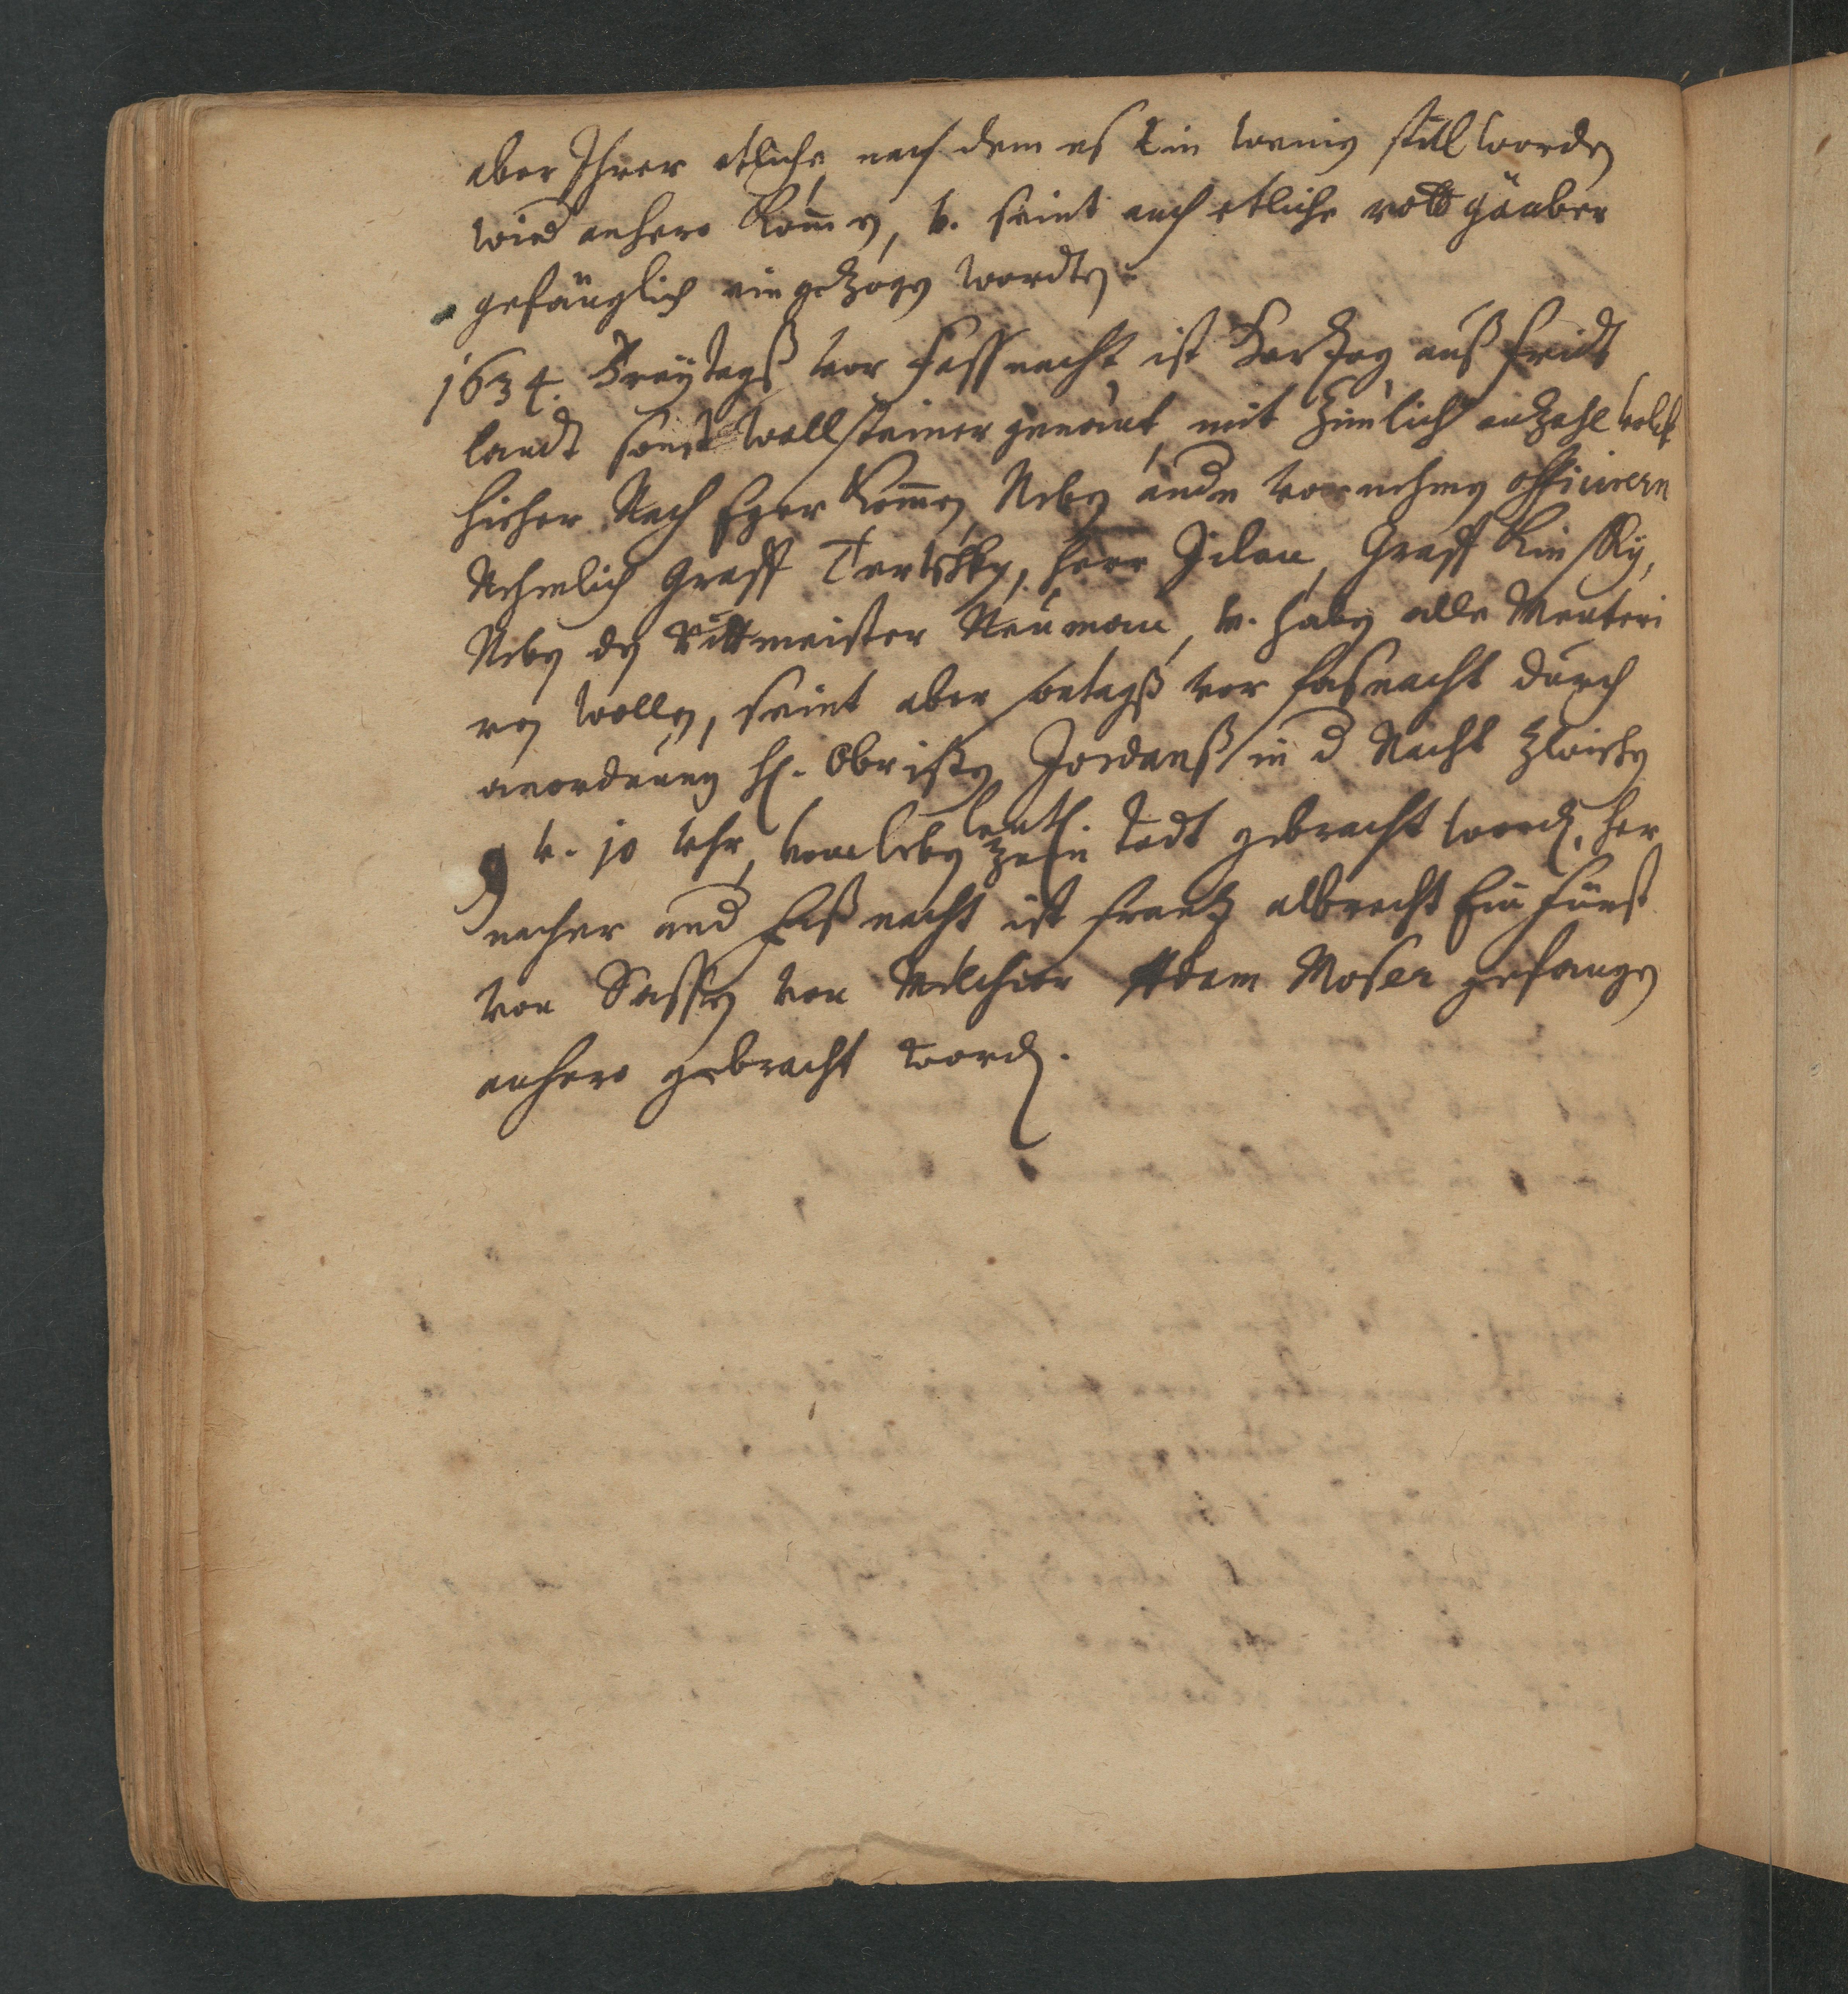 aber Ihrer etliche nach dem es Ein wenig still worden
wid anhero kommen, v. seint auch etliche rottgäaber
gefänglich ein gezogen wordten.
1634. Freÿtagß vor Fassnacht ist Hertzog auß fridt
landt sonst wallsteiner genant mit zimlich anzahl volck
hieher Nach Eger kommen Neben andn vornehmen officirern
Nehmlich Graff Tertschky, herr Jilau, Graff Kinsky,
Neben den Rittmeister Neuman, v. haben alle Meuteri
ren wollen, seint aber sontagß vor fasnacht durch
anordnung H. Obristen Jordanß in d Nacht zwischen
9 v. 10 Uhr, vom leben zum Todt gebracht word, her
nacher and Faßnacht ist frantz albrecht Ein fürst
von Sassen von Melchior Adam Moser gefangen
anhero gebracht word.